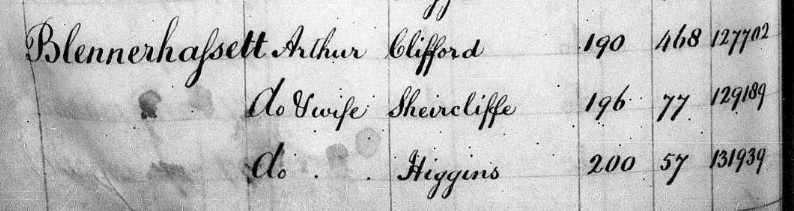 Blennerhaſsett Arthur Clifford 190 468 127702
do & wife Sheircliffe 196 77 129189
do . . Higgins 200 57 131939